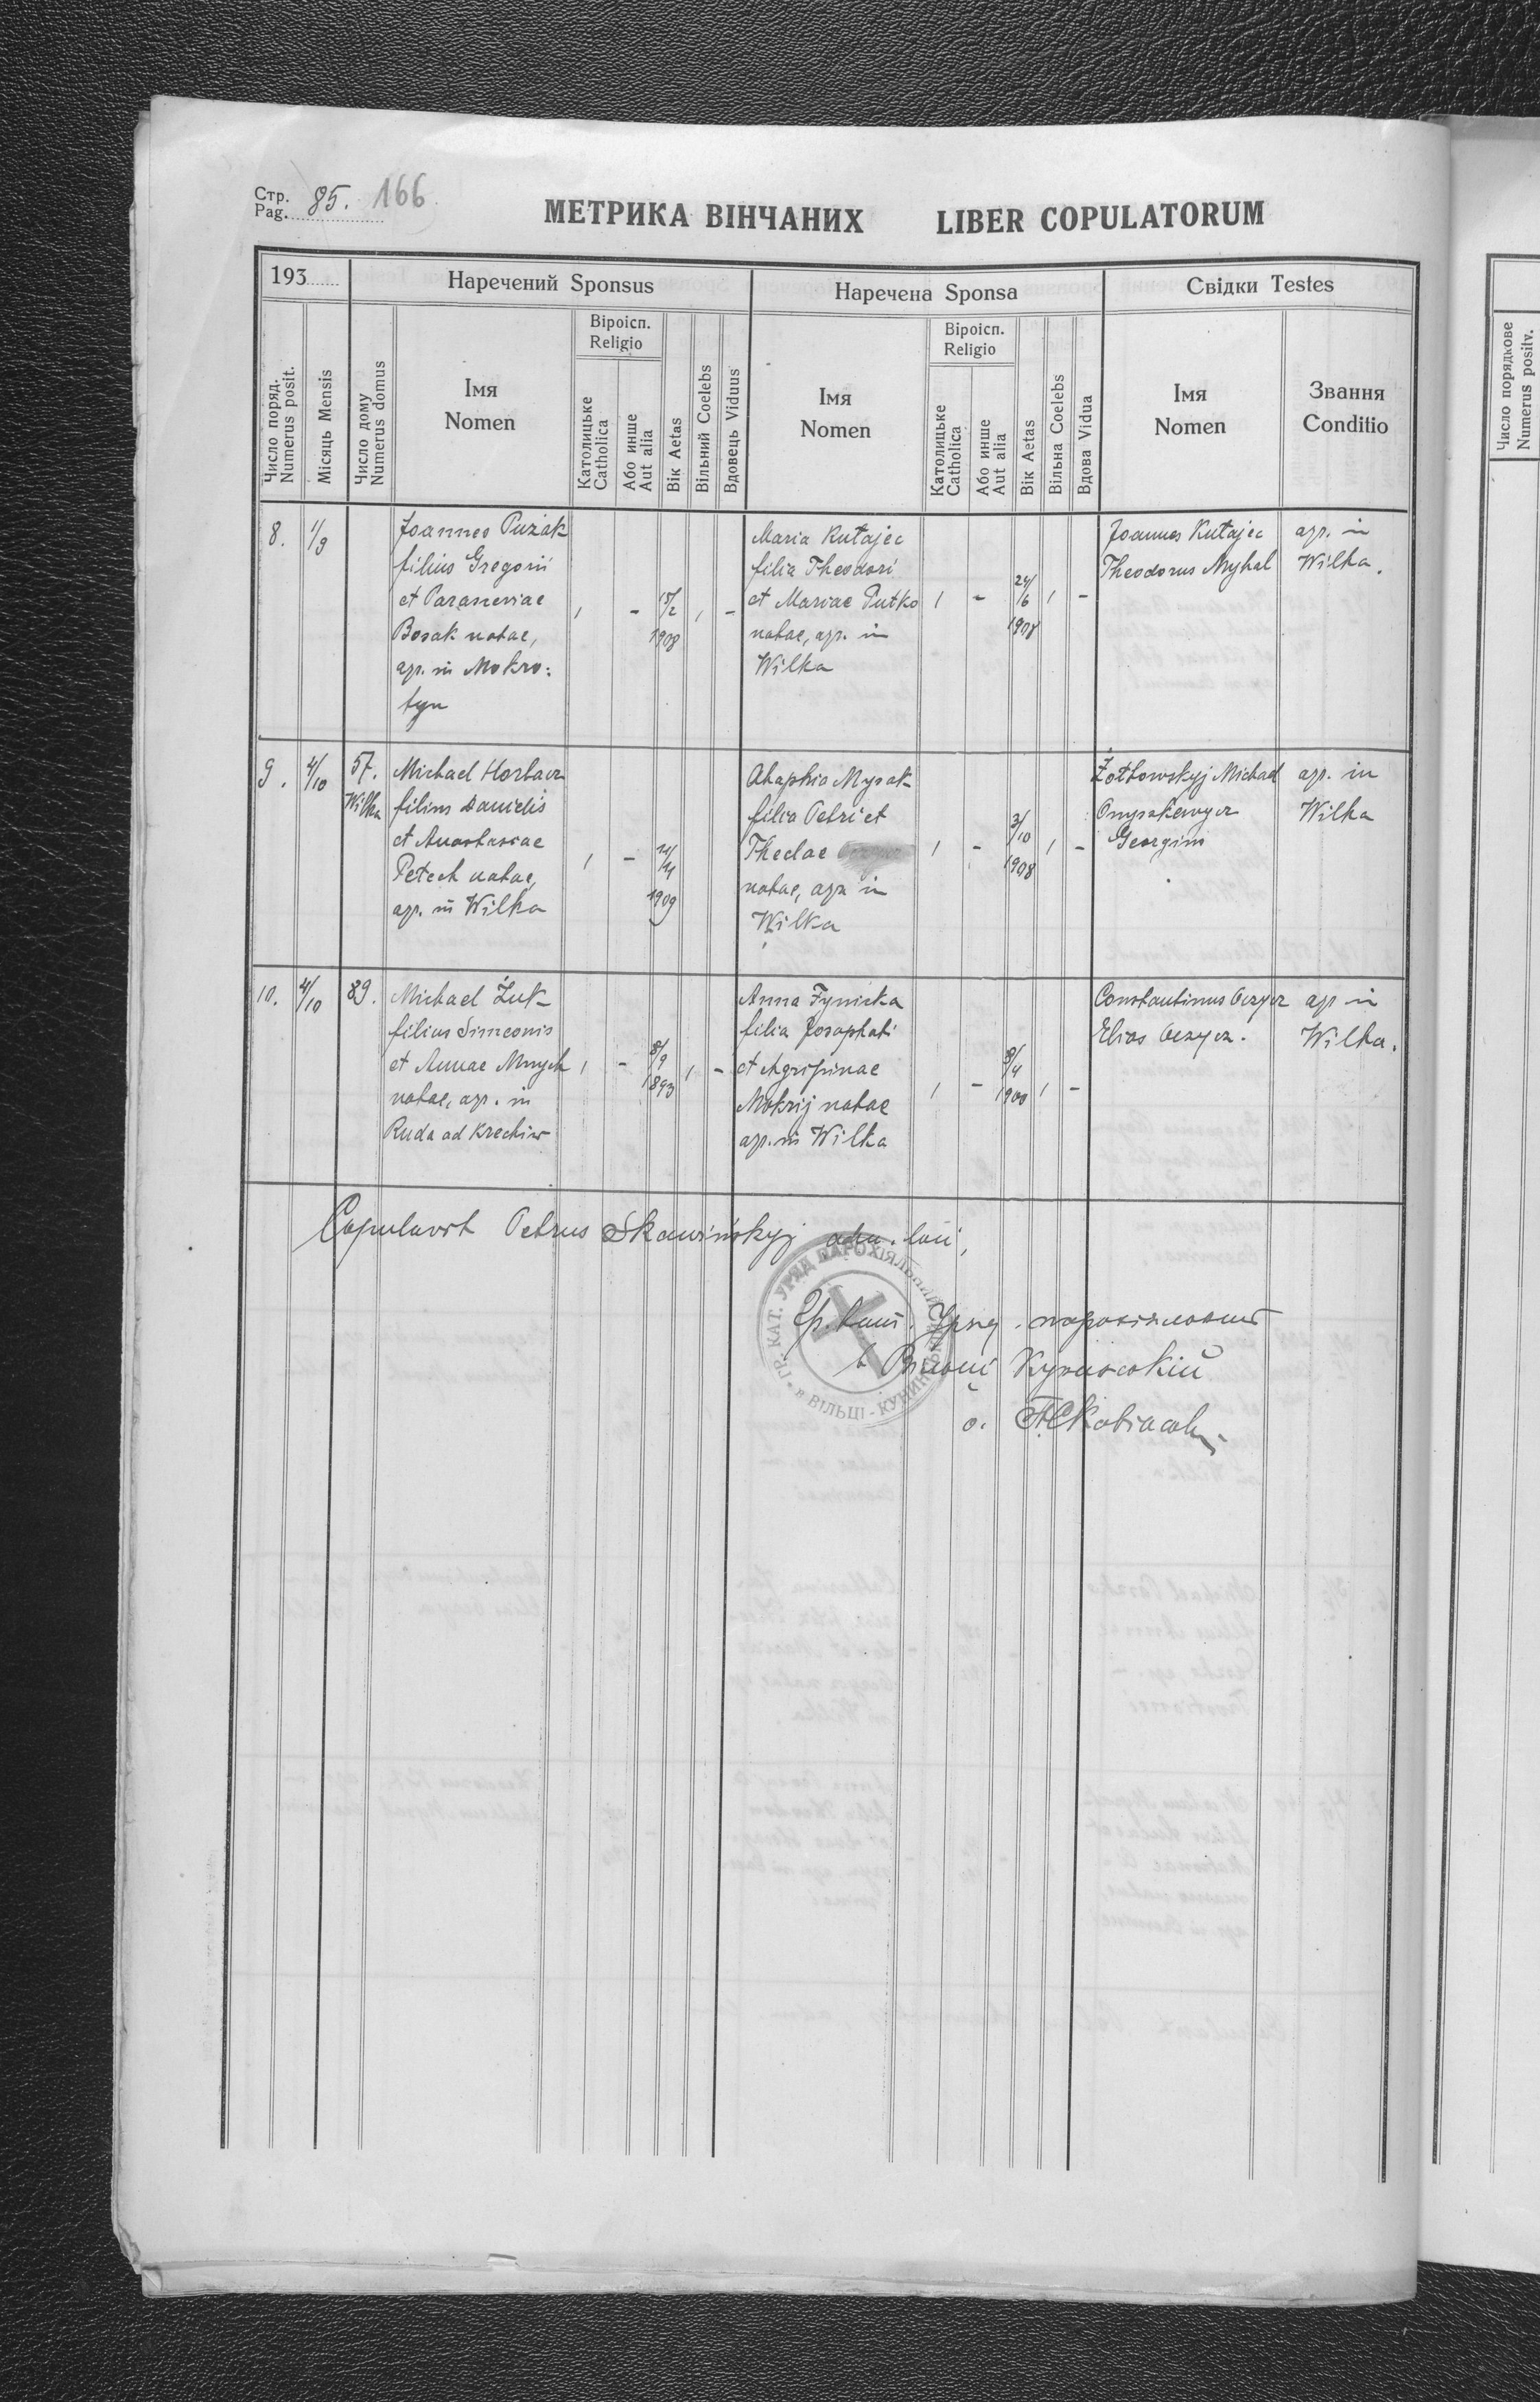 Стр. Pag. 85. 166
МЕТРИКА ВІНЧАНИХ LIBER COPULATORUM
193
Наречений Sponsus
Наречена Sponsa
Свідки Testes
Число поряд. Numerus posit.
Місяць Mensis
Число дому Numerus domus
Імя Nomen
Віроісп. Religio
Католицьке Catholica
Або инше Aut alia
Вік Aetas
Вільний Coelebs
Вдовець Viduus
Імя Nomen
Віроісп. Religio
Католицьке Catholica
Або инше Aut alia
Вік Aetas
Вільна Coelebs
Вдова Vidua
Імя Nomen
Звання Conditio
Число порядкове
Numerus positv.
8. 1/9
Joannes Pużak
filius Gregorii
et Parasceviae
Bosak natae,
agr. in Mokro:
tyn
1 - 15/2 1908 1 -
Maria Kutajec
filia Theodori
et Mariae Putko
natae, agr. in
Wilka
1 - 24/6 1908 1 -
Joannes Kutajec
Theodorus Myhal
agr. in
Wilka.
9. 4/10 57.
Wilka
Michael Horbacz
filius Danielis
et Anastasiae
Petech natae,
agr. in Wilka
1 - 21/4 1909
Ahaphia Mysak
filia Petri et
Theclae
natae, agr. in
Wilka
1 - 3/10 1908 1 -
Żołtowskyj Michael
Onyszkewycz
Georgius
agr. in
Wilka
10. 4/10 89.
Michael Żuk
filius Simeonis
et Annae Mnych
natae, agr. in
Ruda ad Krechiw
1 - 8/9 1893 1 -
Anna Fynicka
filia Josaphati
et Agripinae
Mokrij natae
agr. in Wilka
1 - 8/4 1900 1 -
Constantinus
Elias
agr in
Wilka.
Copulavit Petrus Skawińskyj adm. loci,
ГР. КАТ. УРЯД ПАРОХІЯЛЬНИЙ в ВІЛЬЦІ-КУНИНСЬКІЙ
Гр. Кат. Уряд парохіяльний
в Вільці Кунинській
о. П. Скавінськ